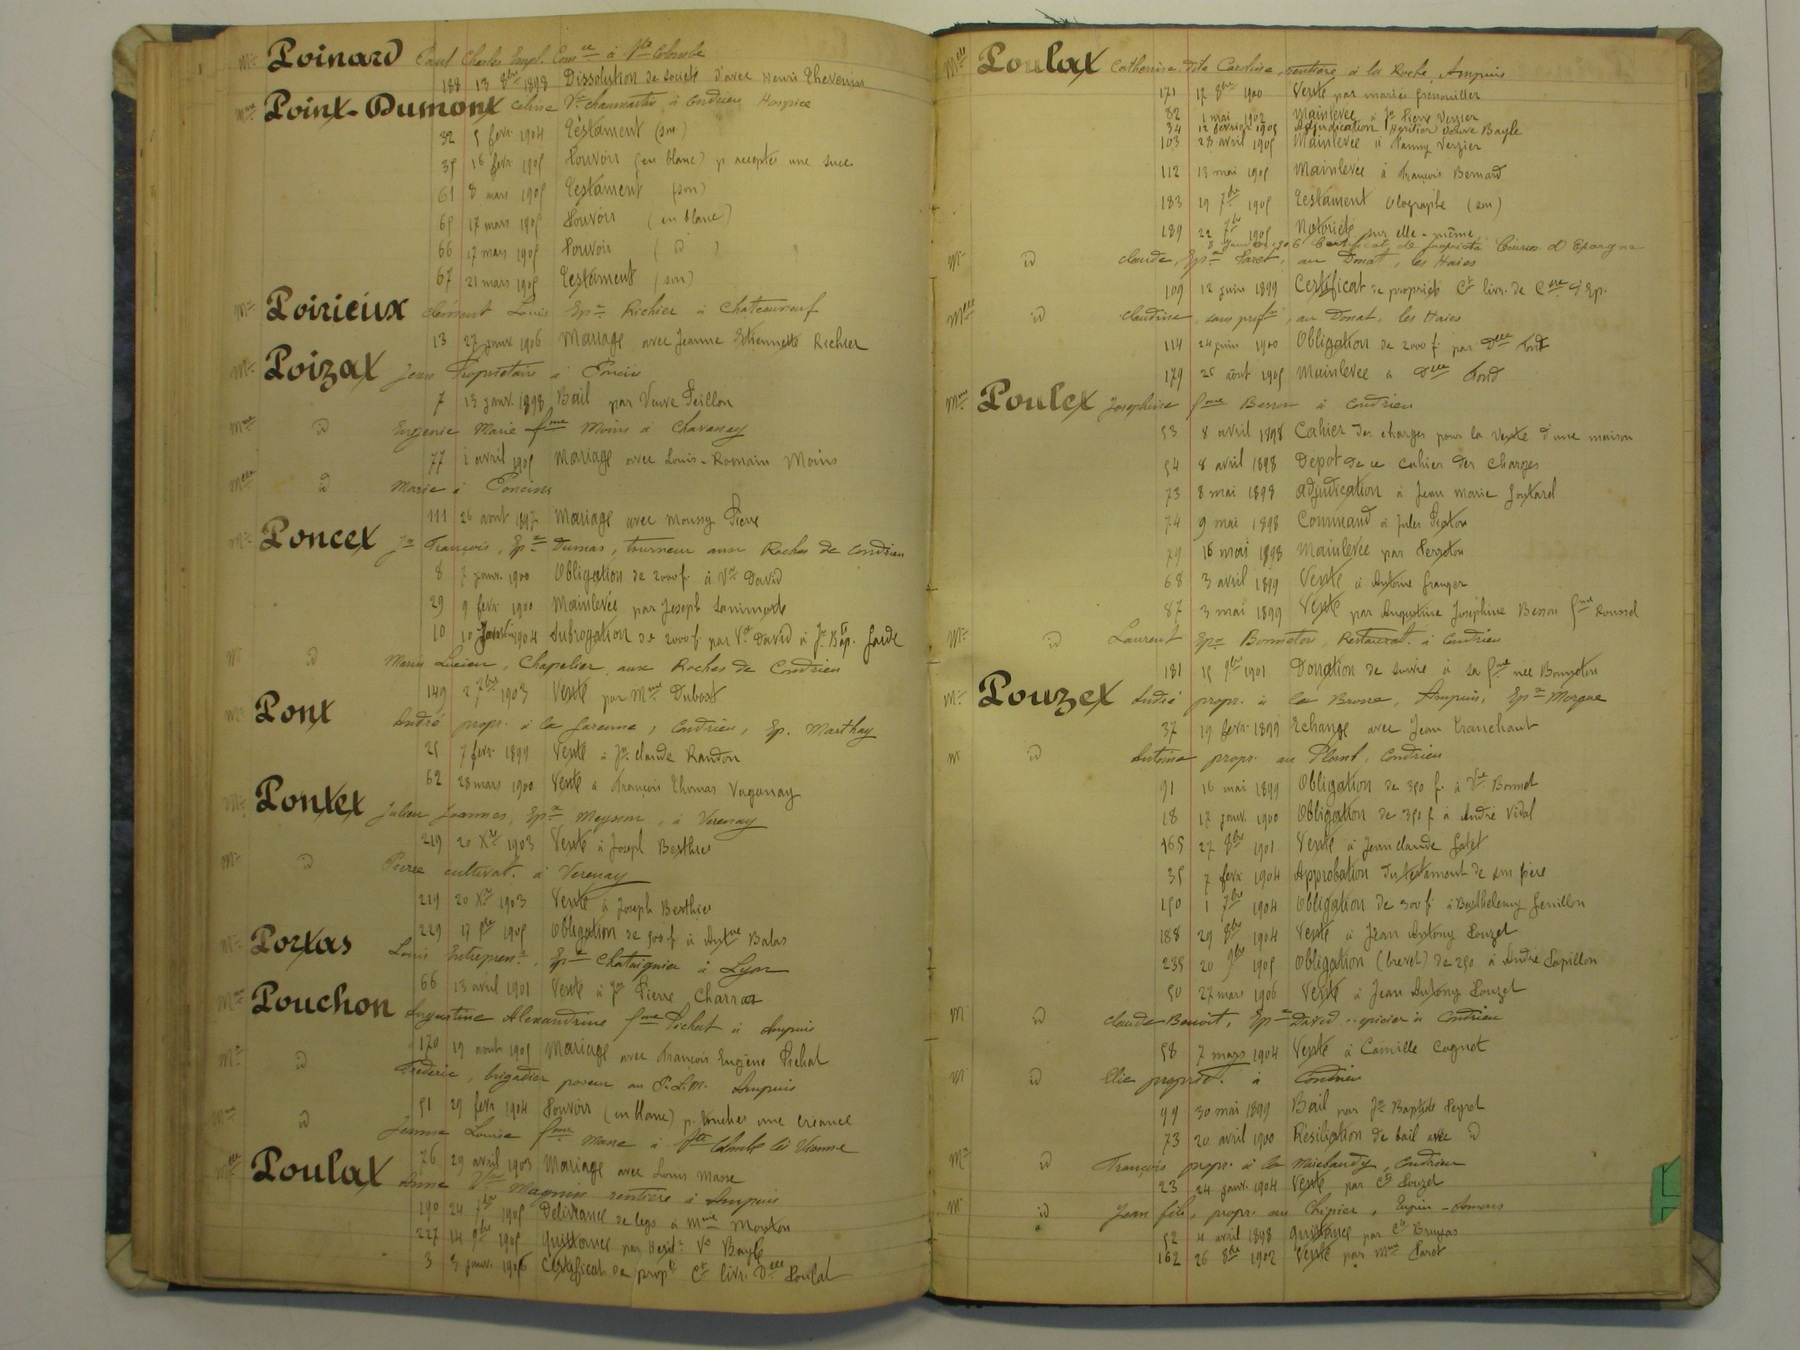 Mr Poinard Paul Charles Empl. Comce à Ste Colombe
188 13 8bre 1898 Dissolution de société d'avec Henri Thevenin
Mme Point-Dumont Celine Ve Chaumartin, à Condrieu Hospice
32 5 fevr. 1904 Testament (son)
35 16 fevr. 1905 Pouvoir (en blanc) pr accepter une succ
61 8 mars 1905 Testament (son)
65 17 mars 1905 Pouvoir (en blanc)
66 17 mars 1905 Pouvoir ( id )
67 21 mars 1905 Testament (son)
Mr Poirieux Clément Louis Epx Richier à Chateauneuf
13 27 janvr 1906 Mariage avec Jeanne Etiennette Richier
Mr Poizat Jean Propriétaire à Poncin
7 13 janv. 1898 Bail par Veuve Peillon
Mme id Eugenie Marie fme Moins à Chavanay
77 1 avril 1905 Mariage avec Louis-Romain Moins
id Marie à Poncins
111 26 aout 1897 Mariage avec Moussy Pierre
Mr Poncet Jn François, Epx Dumas, tourneur aux Roches de Condrieu
8 7 janv. 1900 Obligation de 2000 f. à Ve David
29 9 fevr. 1900 Mainlevée par Joseph
10 10 Janvr 1904 Subrogation de 2000 f par Ve David à Jn Bap. Garde
M id Marie Lucien, Chapelier aux Roches de Condrieu
149 2 7bre 1903 Vente par Mme Dubost
Mr Pont André propr. à la Garenne, Condrieu, Ep. Marthay
25 7 fevr. 1899 Vente à Jn Claude Randon
62 28 mars 1900 Vente à François Thomas Vaganay
Mr Pontet Julien Joannes, Epx Meyson, à Verenay
219 20 Xbre 1903 Vente à Joseph Berthier
Mr id Pierre cultivat. à Verenay
219 20 Xbre 1903 Vente à Joseph Berthier
229 17 1905 Obligation de 500 f à Antne Balas
Mr Portas Louis Entreprenr, Epx Chataignier à Lyon
66 13 avril 1901 Vente à Jn Pierre Charras
Mme Pouchon Augustine Alexandrine fme Pichat à Ampuis
170 19 aout 1905 Mariage avec François Eugène Pichat
Mr id Frédéric, brigadier poseur au P.L.M. Ampuis
51 29 fevr. 1904 Pouvoir (en blanc) p. toucher une créance
Mme id Jeanne Louise fme Masse à Ste Colombe les Vienne
76 29 avril 1903 Mariage avec Louis Masse
Poulat Anne Ve Magnin rentière à Ampuis
190 24 7bre 1905 Delivrance de legs à Mme Mouton
227 14 9bre 1905 Quittance par Herit. Ve Bayle
3 3 janv. 1906 Certificat de propté Ct livr. Delle Poulat
Melle Poulat Catherine dite Caroline, rentière à la Roche, Ampuis
171 17 8bre 1900 Vente par mariés Grenouiller
82 1 mai 1902 Mainlevée à Jn Pierre Verzier
34 12 février 1905 Adjudication Héritier Veuve Bayle
103 28 avril 1905 Mainlevée à Fanny Verzier
112 13 mai 1905 Mainlevée à François Bernard
183 19 7bre 1905 Testament olographe (son)
189 22 7bre 1905 Notoriété sur elle-même
3 janvier 1906 Certificat de propriété Caisse d'Epargne
Mr id Claude, Epx Paret, au Donat, les Haies
109 12 juin 1899 Certificat de propriété Ct livr. de Csse d'Ep.
Melle id Claudine, sans profon, au Donat, les Haies
114 24 juin 1900 Obligation de 2000 f par Delle Fond
179 25 août 1905 Mainlevée à Delle Fond
Mme Poulet Josephine fme Besson à Condrieu
53 8 avril 1898 Cahier des charges pour la vente d'une maison
54 8 avril 1898 Dépot de ce cahier des charges
73 8 mai 1898 adjudication à Jean Marie
74 9 mai 1898 Command à Jules Piaton
79 16 mai 1898 Mainlevée par
68 3 avril 1899 Vente à Antoine Granger
87 3 mai 1899 Vente par Augustine Joséphine Besson fme Roussel
Mr id Laurent Epx Bonneton, Restaurat. à Condrieu
181 15 9bre 1901 Donation de survie à sa fme née Bonneton
Mr Pouzet André propr. à la Brosse, Ampuis, Epx Morgue
37 19 fevr. 1899 Echange avec Jean Tranchant
M id Antoine propr. au Plomb, Condrieu
91 16 mai 1899 Obligation de 350 f. à Ve Bonnet
18 17 janv. 1900 Obligation de 350 f à André Vidal
165 27 8bre 1901 Vente à Jean Claude Galet
35 7 fevr 1904 Approbation du testament de son frère
150 1 7bre 1904 Obligation de 300 f à Barthelemy Gerillon
188 29 8bre 1904 Vente à Jean Antony Pouzet
235 20 9bre 1905 Obligation (brevet) de 250 à André Papillon
50 27 mars 1906 Vente à Jean Antony Pouzet
M id Claude Benoit, Epx David épicier à Condrieu
58 7 mars 1904 Vente à Camille Cognet
M id Elie propriét. à Condrieu
99 30 mai 1899 Bail par Jn Baptiste Peyrot
73 20 avril 1900 Résiliation de bail avec id
Mr id François propr. à la Maiebaudy, Condrieu
23 24 janv. 1904 Vente par Cts Pouzet
Mr id Jean fils, propr. au Chipier, Tupin-Semons
52 4 avril 1898 Quittance par Ct Bruyas
162 26 8bre 1902 Vente par Mme Paret